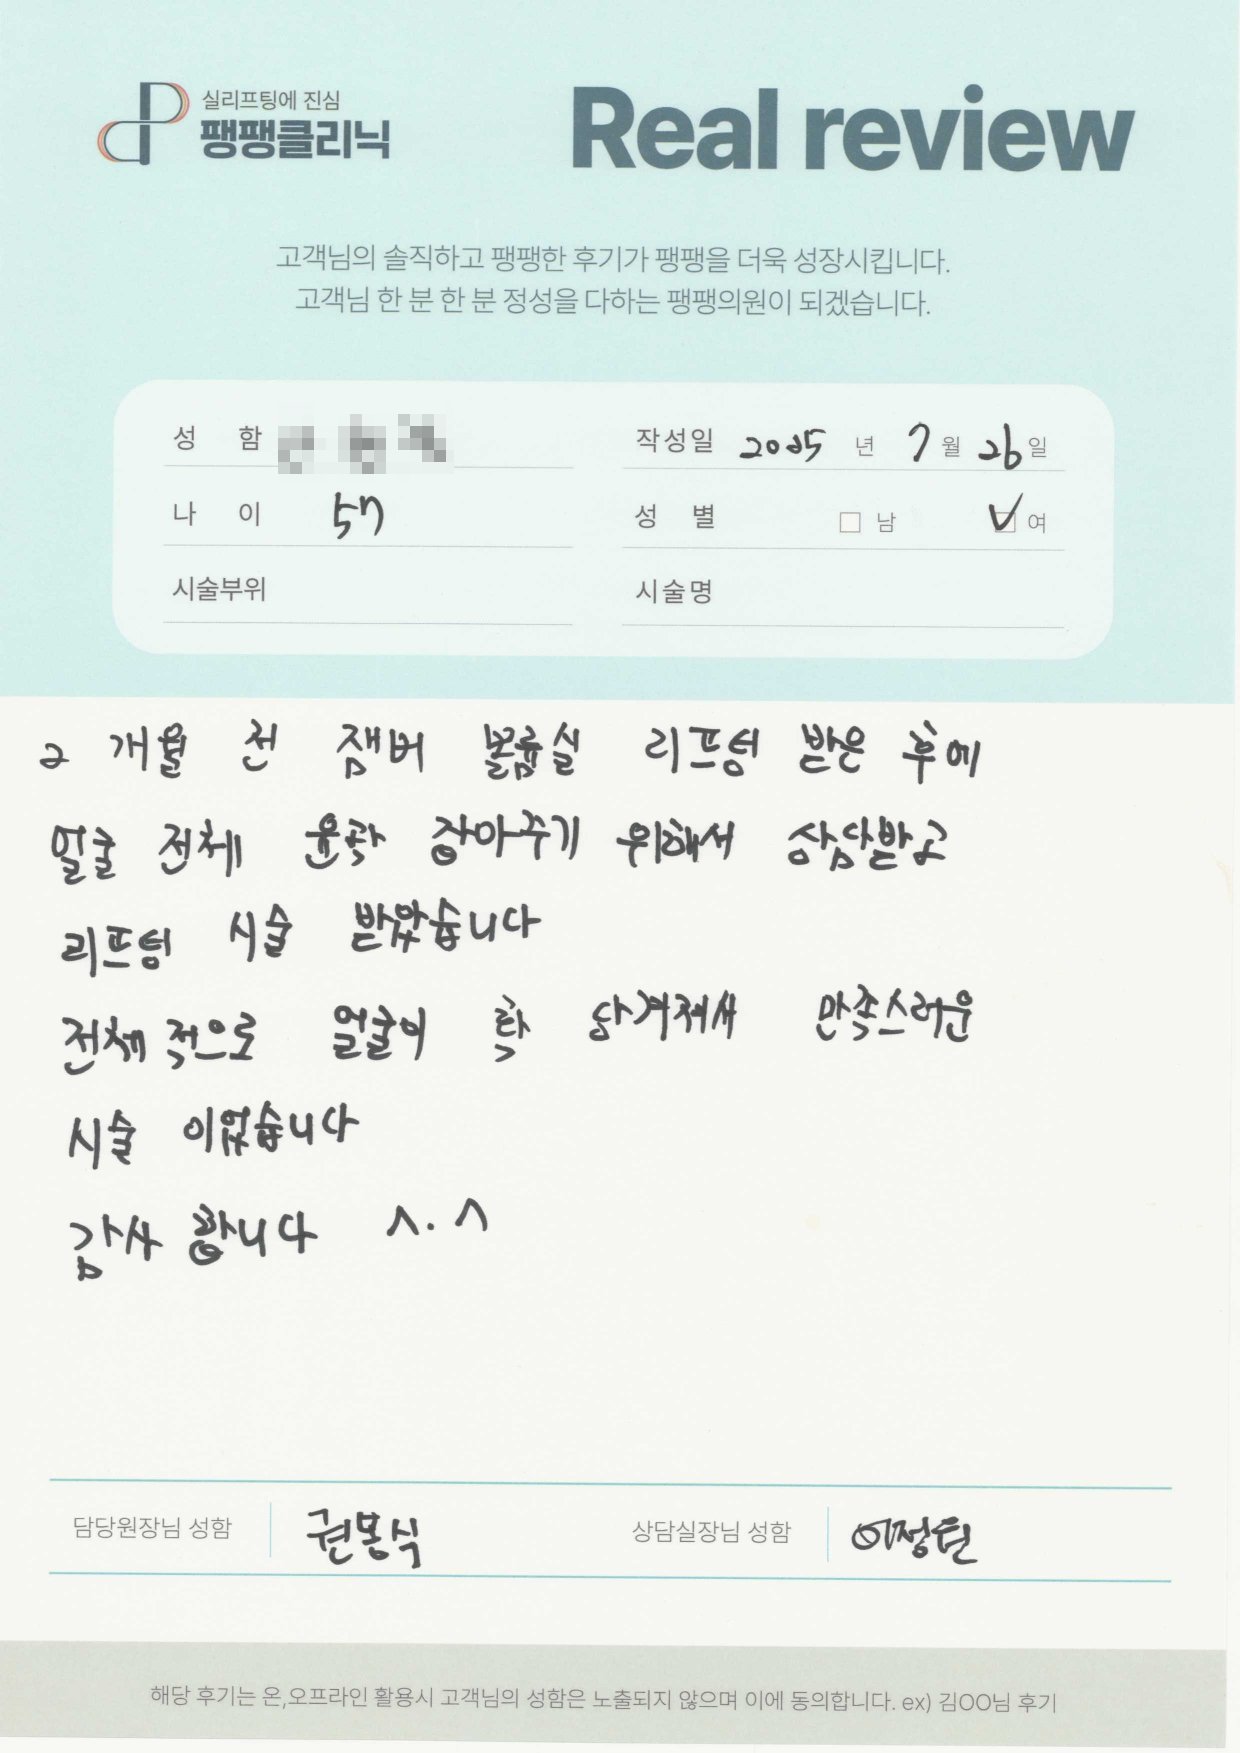 실리프팅에 진심
팽팽클리닉
Real review
고객님의 솔직하고 팽팽한 후기가 팽팽을 더욱 성장시킵니다.
고객님 한 분 한 분 정성을 다하는 팽팽의원이 되겠습니다.
성 함
작성일 2025 년 7 월 26 일
나 이 57
성 별 남 여
시술부위
시술명
2 개월 전 잼버 볼륨실 리프팅 받은 후에
얼굴 전체 윤곽 잡아주기 위해서 상담받고
리프팅 시술 받았습니다
전체적으로 얼굴이 확 당겨져서 만족스러운
시술 이었습니다
감사 합니다 ^.^
담당원장님 성함 권봉식
상담실장님 성함 이정
해당 후기는 온,오프라인 활용시 고객님의 성함은 노출되지 않으며 이에 동의합니다. ex) 김OO님 후기